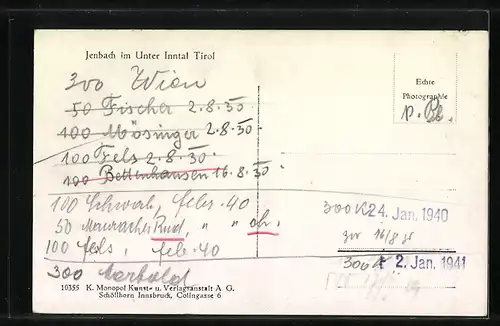 Jenbach im Unter Inntal Tirol
300 Wien
50 Fischer 2.8.30
100 Mösinger 2.8.30
100 Fels 2.8.30
100 Bettenhausen 16.8.30
100 Schwab, febr. 40
50 Mauracher " " ab.
100 Fels, feb. 40
300
10355 K. Monopol Kunst- u. Verlagsanstalt A G.
Schöllhorn Innsbruck, Colingasse 6
Echte
Photographie
300 K 24. Jan. 1940
300 K 2. Jan. 1941